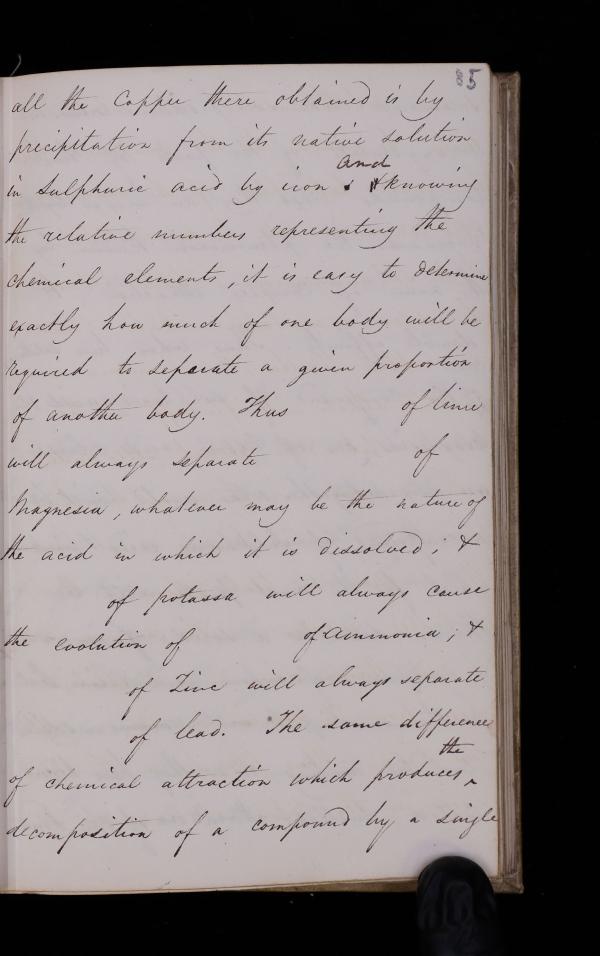 85
all the Copper there obtained is by
precipitation from its native solution
in Sulphuric acid by iron & and knowing
the relative numbers representing the
chemical elements, it is easy to determine
exactly how much of one body will be
required to separate a given proportion
of another body. Thus of lime
will always separate of
Magnesia, whatever may be the nature of
the acid in which it is dissolved; &
of potassa will always cause
the evolution of of Ammonia; &
of Zinc will always separate
of lead. The same difference
of chemical attraction which produces the
decomposition of a compound by a single